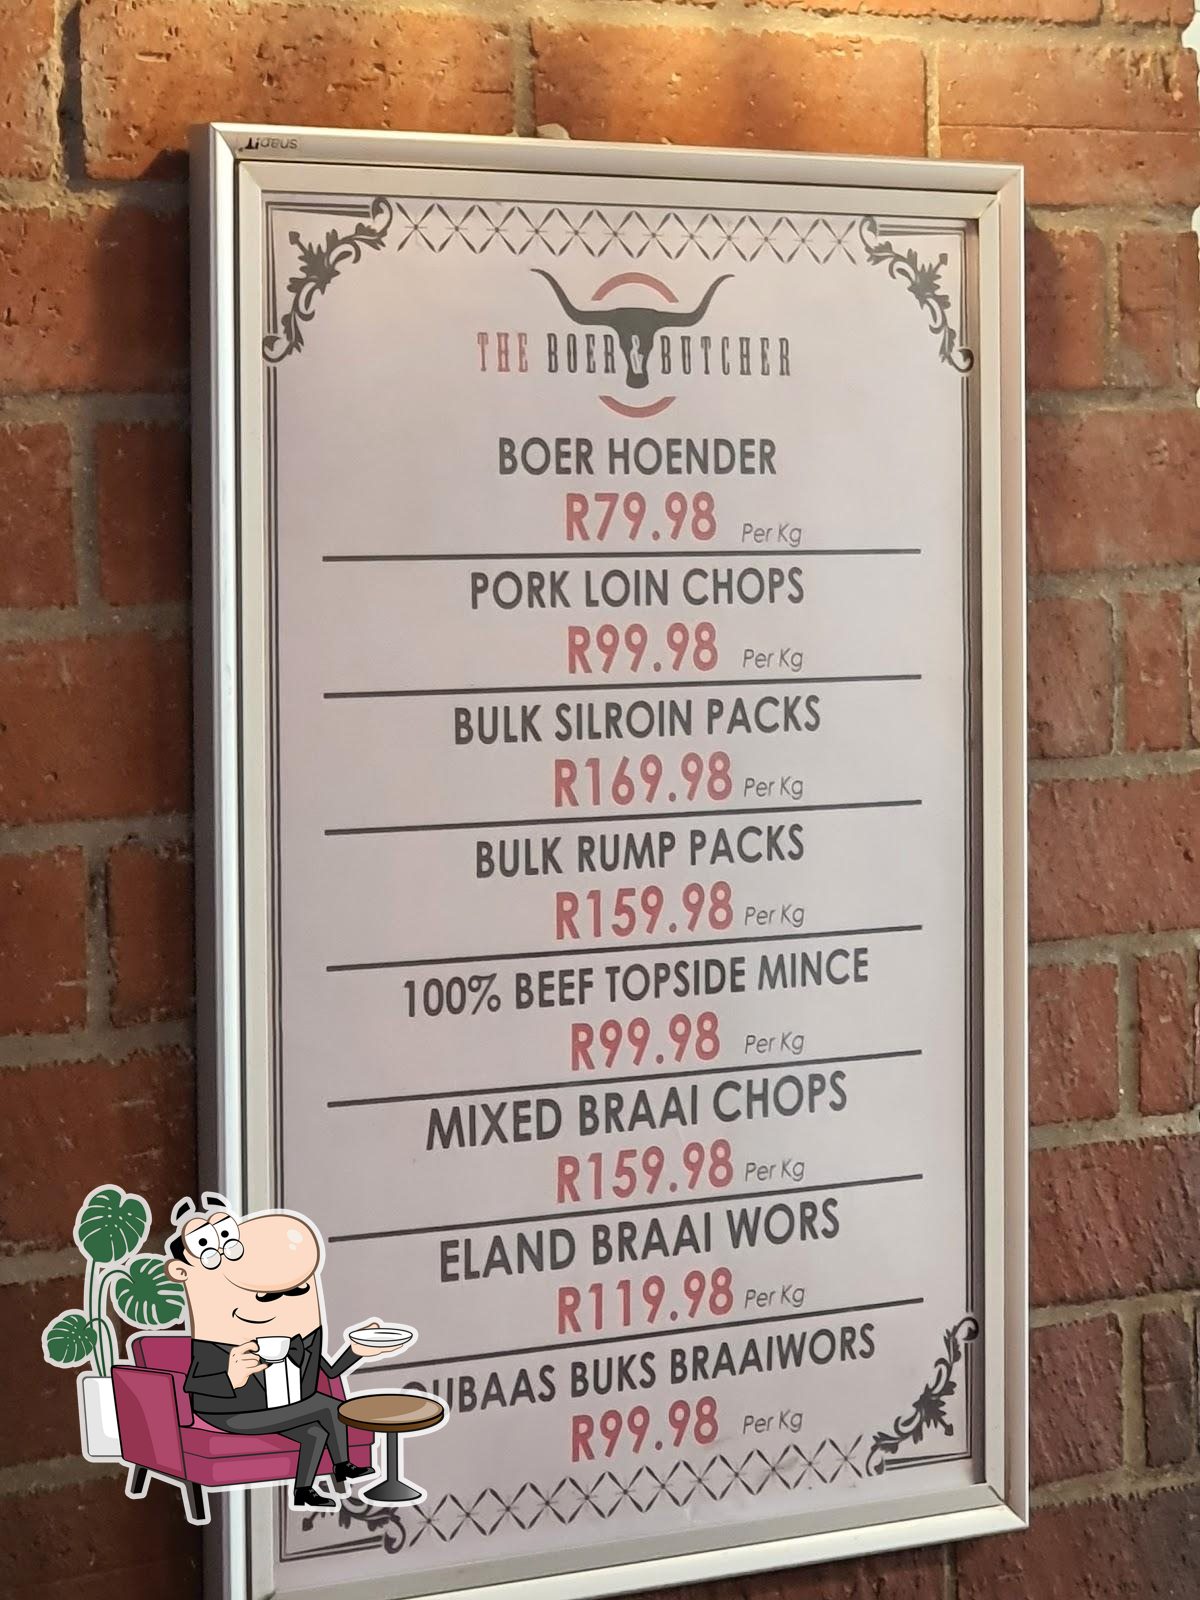 snapIT
THE BOER & BUTCHER
BOER HOENDER
R79.98 Per Kg
PORK LOIN CHOPS
R99.98 Per Kg
BULK SILROIN PACKS
R169.98 Per Kg
BULK RUMP PACKS
R159.98 Per Kg
100% BEEF TOPSIDE MINCE
R99.98 Per Kg
MIXED BRAAI CHOPS
R159.98 Per Kg
ELAND BRAAI WORS
R119.98 Per Kg
BUKS BRAAIWORS
R99.98 Per Kg